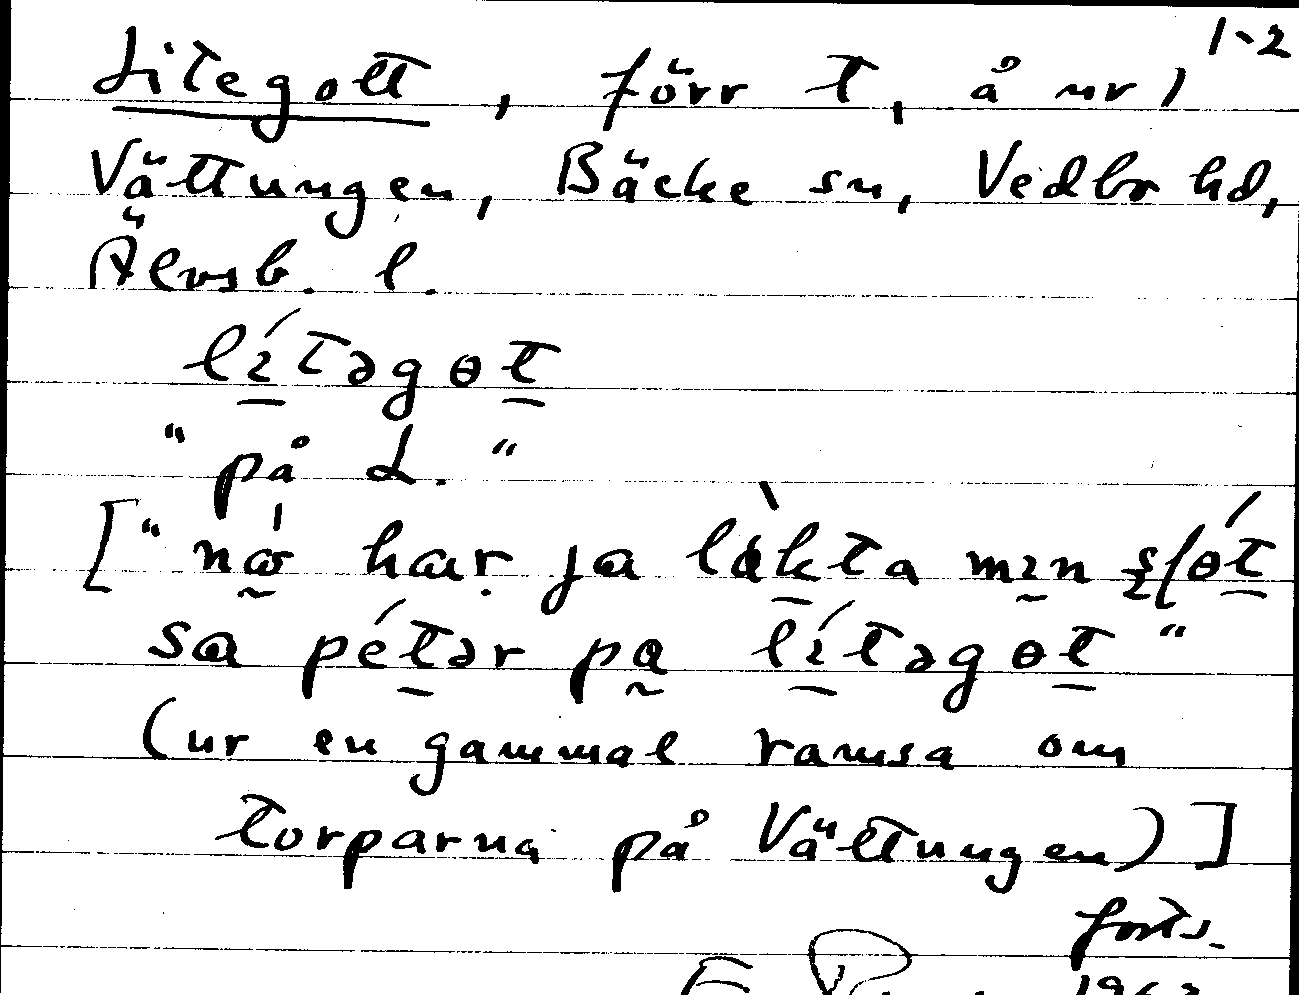 1-2
Litegott, förr t, å nr 1
Vättungen, Bäcke sn, Vedbo hd,
Älvsb. l.
lítəgɵt
"på L."
["nɷ har ja lɑ̀kta mın sʃɵ́t
sa pétər pɑ lítəgɵt"
(ur en gammal ramsa om
torparna på Vättungen)]
forts.